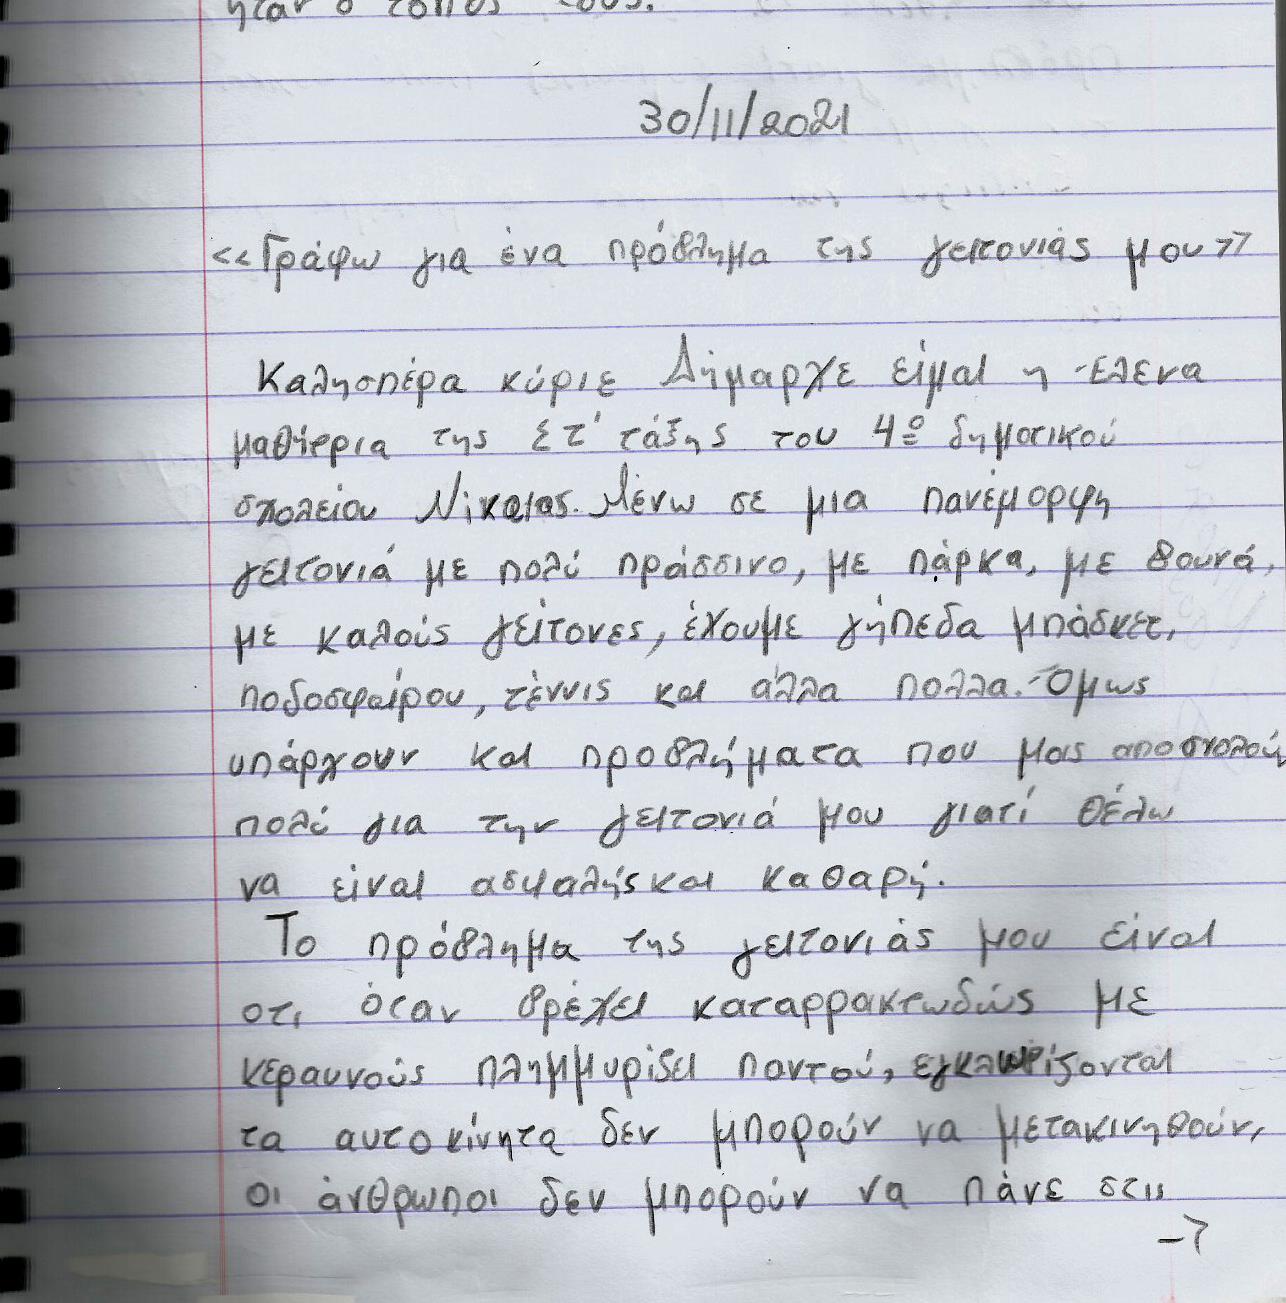 ήταν ο τόπος τους.
30/11/2021
<<Γράφω για ένα πρόβλημα της γειτονιάς μου>>
Καλησπέρα κύριε Δήμαρχε είμαι η Έλενα
μαθήρρια της Στ' τάξης του 4ο δημοτικού
σχολείου Νίκαιας. Μένω σε μια πανέμορφη
γειτονιά με πολύ πράσσινο, με πάρκα, με βουνά,
με καλούς γείτονες, έχουμε γήπεδα μπάσκετ,
ποδοσφαίρου, τέννις και άλλα πολλα. Όμως
υπάρχουν και προβλήματα που μας αποσχολούν
πολύ για την γειτονιά μου γιατί θέλω
να είναι ασφαλής και καθαρή.
Το πρόβλημα της γειτονιάς μου είναι
οτι όταν βρέχει καταρρακτωδώς με
κεραυνούς πλημμυρίζει παντού, εγκλωρίζονται
τα αυτοκίνητα δεν μπορούν να μετακινηθούν,
οι άνθρωποι δεν μπορούν να πάνε στις